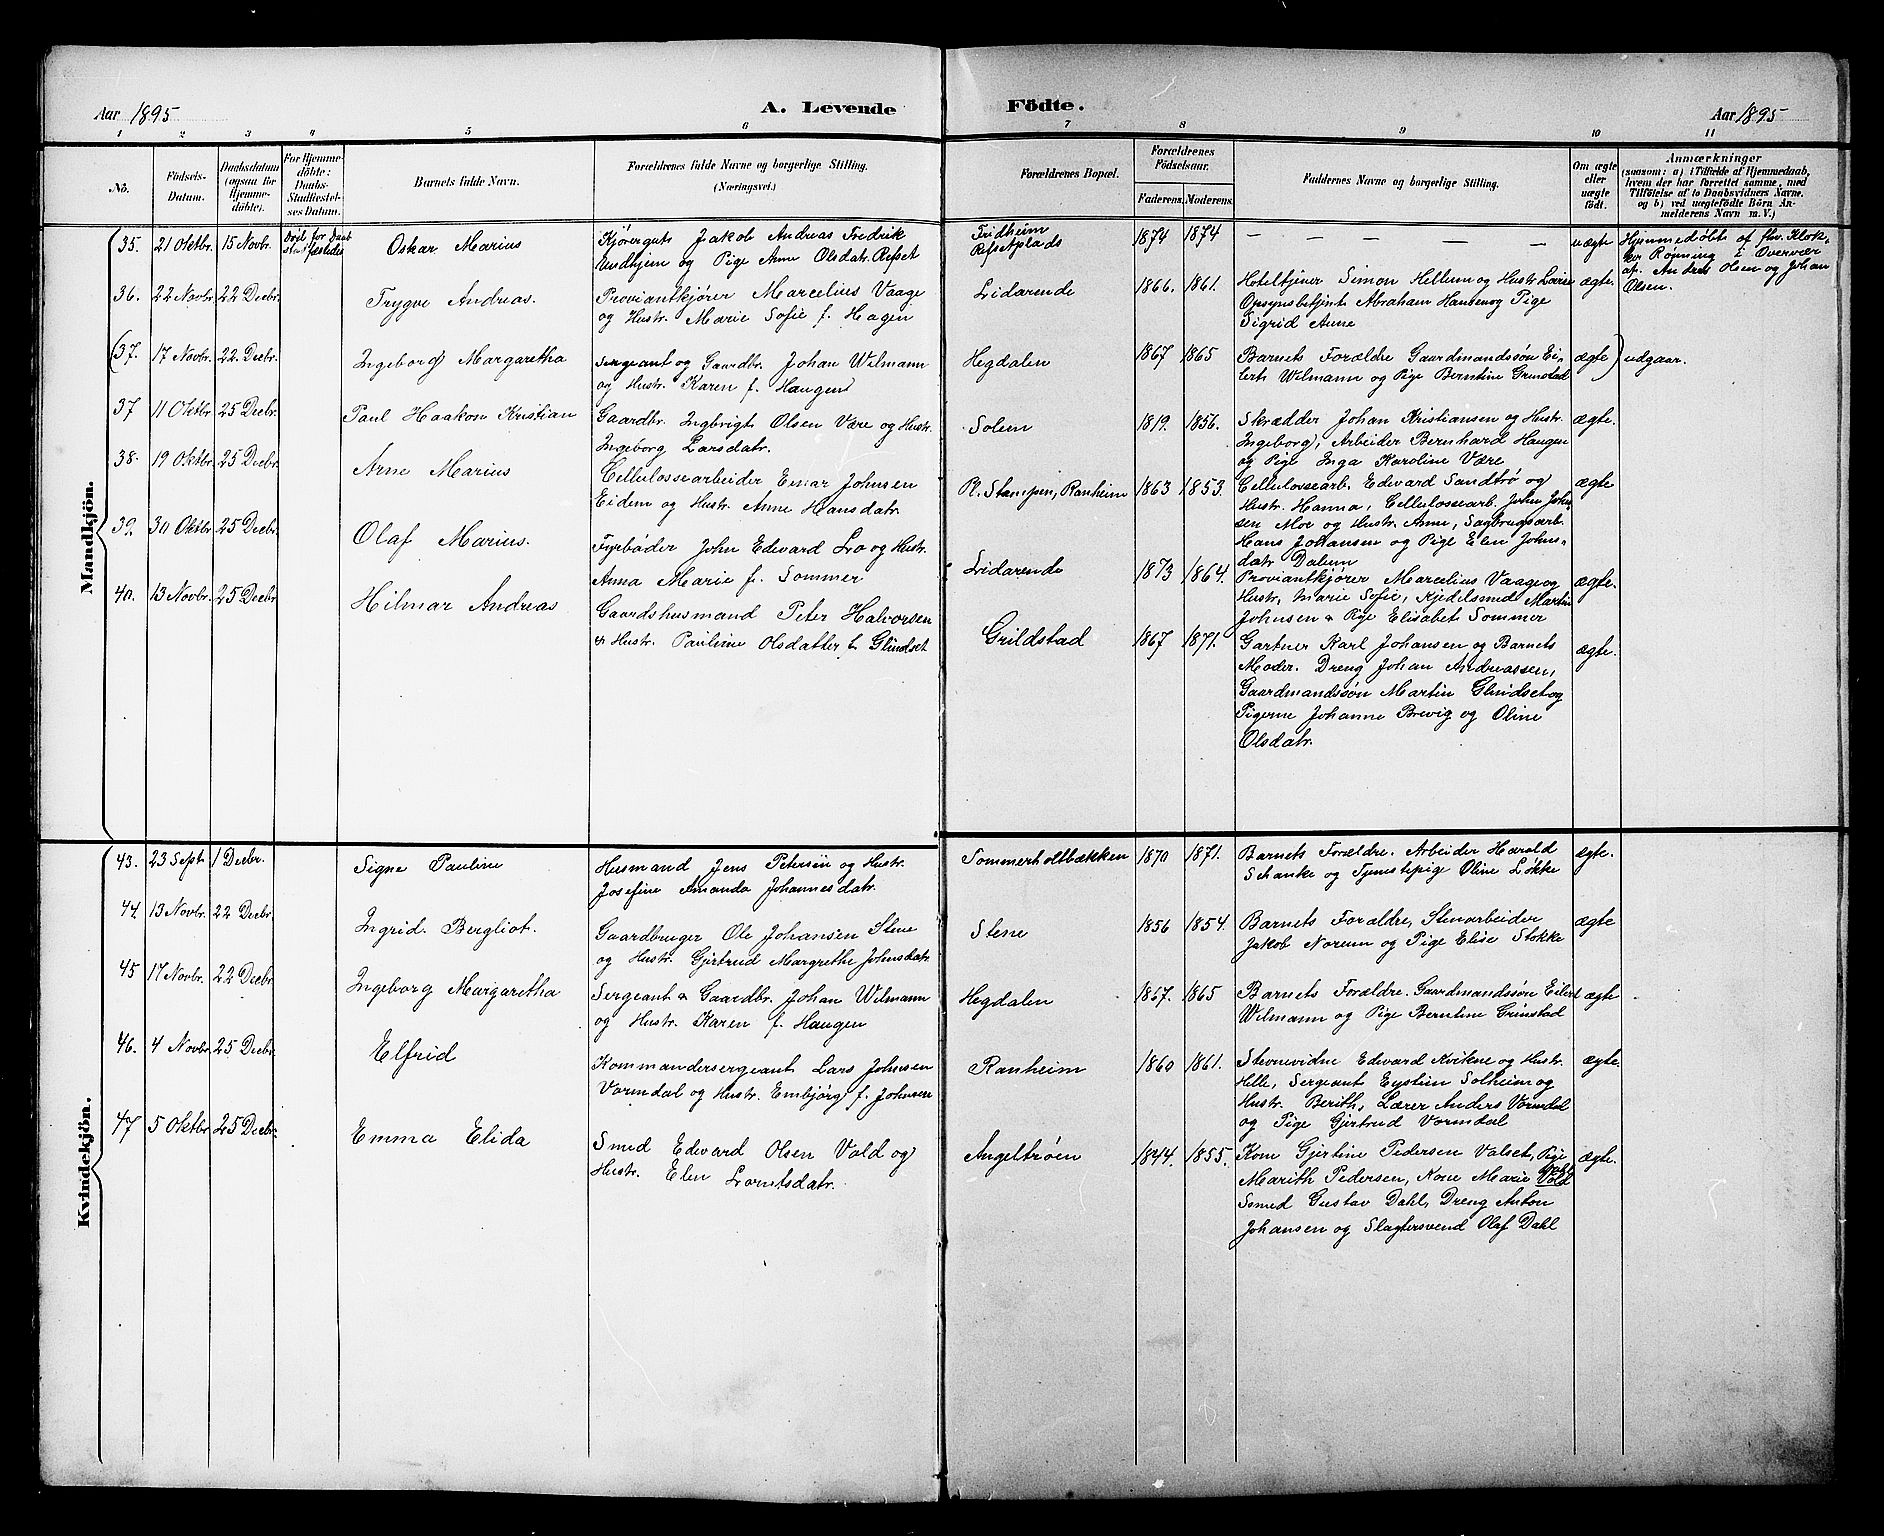 Aar 1895
A. Levende
Födte.
Aar 1895
1 2 3 4 5 6 7 8 9 10 11
No.
Födsels-
Datum.
Daabsdatum
(ogsaa for
Hjemme-
döbte).
For Hjemme-
döbte:
Daabs-
Stadfæstel-
ses Datum.
Barnets fulde Navn.
Forældrenes fulde Navne og borgerlige Stilling.
(Næringsvei.)
Forældrenes Bopæl.
Forældrenes
Födselsaar.
Faderens. Moderens.
Faddernes Navne og borgerlige Stilling.
Om ægte
eller
uægte
födt.
Anmærkninger
(saasom: a) i Tilfælde af Hjemmedaab,
hvem der har forrettet samme, med
Tilföielse af to Daabsvidners Navne.
og b) ved uegtefödte Börn An-
melderens Navn m. V.)
Mandkjön.
35. 21 Oktbr. 15 Novbr. Oskar Marius
Jakob Andreas Fredrik
og Pige Anne Olsdatr. Refset
Fridheim
Refsetplads
1874 1874 — — — — — — uægte
Hjemmedøbt af fhv. Klok-
ker Rønning i Overvær
af. Anders Olsen og Johan
Olsen.
36. 22 Novbr. 22 Decbr. Trygve Andreas.
Proviantkjører Marcelius Vaage
og Hustr. Marie Sofie f. Hagen
Lidarende 1866. 1861.
Hoteltjener Simon Hellem og Hustr. Lovise
Opsynsbetjent Abraham Hansen og Pige
Sigrid Aune
ægte.
(37. 17 Novbr. 22 Decbr. Ingeborg Margaretha
Sergeant og Gaardbr. Johan Wilmann
og Hustr. Karen f. Haugen
Hegdalen 1867 1865
Barnets Forældre Gaardmandssøn Ei-
lert Wilmann og Pige Berntine Grinstad
ægte) udgaar.
37. 11 Oktbr. 25 Decbr. Paul Haakon Kristian
Gaardbr. Ingbrigt Olsen Være og Hustr.
Ingeborg Larsdatr.
Solem 1819. 1856.
Skrædder Johan Kristiansen og Hustr.
Ingeborg, Arbeider Bernhard Haugen
og Pige Inga Karoline Være
ægte.
38. 19 Oktbr. 25 Decbr. Arne Marius
Cellulossearbeider Einar Johnsen
Eidem og Hustr. Anne Hansdatr.
Pl. Stampen, Ranheim 1863 1853.
Cellulossearb. Edevard Sandtrø og
Hustr. Hanna, Cellulossearb. John John-
sen Moe og Hustr. Anne, Sagbrugsarb.
Hans Johansen og Pige Elen Johns-
datr Dalum
ægte
39. 30 Oktbr. 25 Decbr. Olaf Marius.
Fyrbøder John Edevard Lo og Hustr.
Anna Marie f. Sommer
Lidarende 1873 1864.
Proviantkjører Marcelius Vaage og
Hustr. Marie Sofie, Kjedelsmed Martin
Johnsen & Pige Elisabet Sommer
ægte.
40. 13 Novbr. 25 Decbr Hilmar Andreas
Gaardshusmand Peter Halvorsen
& Hustr. Pauline Olsdatter Glindset
Grildstad 1867 1871.
Gartner Karl Johansen og Barnets
Moder. Dreng Johan Andreassen,
Gaardmandssøn Martin Glindset og
Pigerne Johanne Brevig og Oline
Olsdatr.
ægte.
Kvindekjön.
43. 23 Sept. 1 Decbr. Signe Pauline
Husmand Jens Petersen og Hustr.
Josefine Amanda Johannesdatr.
Sommerholtbækken 1870 1871.
Barnets Forældre. Arbeider Harald
Schanke og Tjenestepige Oline Løkke
ægte.
44. 13 Novbr. 22 Decbr. Ingrid. Bergliot.
Gaardbruger Ole Johansen Stene
og Hustr. Gjertrud Margrethe Johnsdatr.
Stene 1856 1854.
Barnets Forældre, Stenarbeider
Jakob Norum og Pige Elise Stokke
ægte
45 17 Novbr. 22 Decbr. Ingeborg Margaretha
Sergeant & Gaardbr. Johan Wilmann
og Hustr. Karen f. Haugen
Hegdalen 1867. 1865
Barnets Forældre. Gaardmandssøn Eilert
Wilmann og Pige Berntine Grinstad
ægte
46. 4 Novbr. 25 Decbr. Elfrid
Kommandersergeant Lars Johnsen
Vormdal og Hustr. Embjørg f. Johnsen
Ranheim 1860 1861.
Stevnevidne Edevard Kvikne og Hustr.
Helle, Sergeant Eystein Solheim og
Hustr. Berith, Lærer Anders Vormdal
og Pige Gjertrud Vormdal
ægte.
47 5 Oktbr. 25 Decbr. Emma Elida
Smed Edevard Olsen Vold og
Hustr. Elen Lorntsdatr.
Angeltrøen 1844. 1855.
Kone Gjertine Pedersen Valset, Pige
Marith Pedersen, Kone Marie Vold
Smed Gustav Dahl, Dreng Anton
Johansen og Slagtersvend Olaf Dahl
ægte.